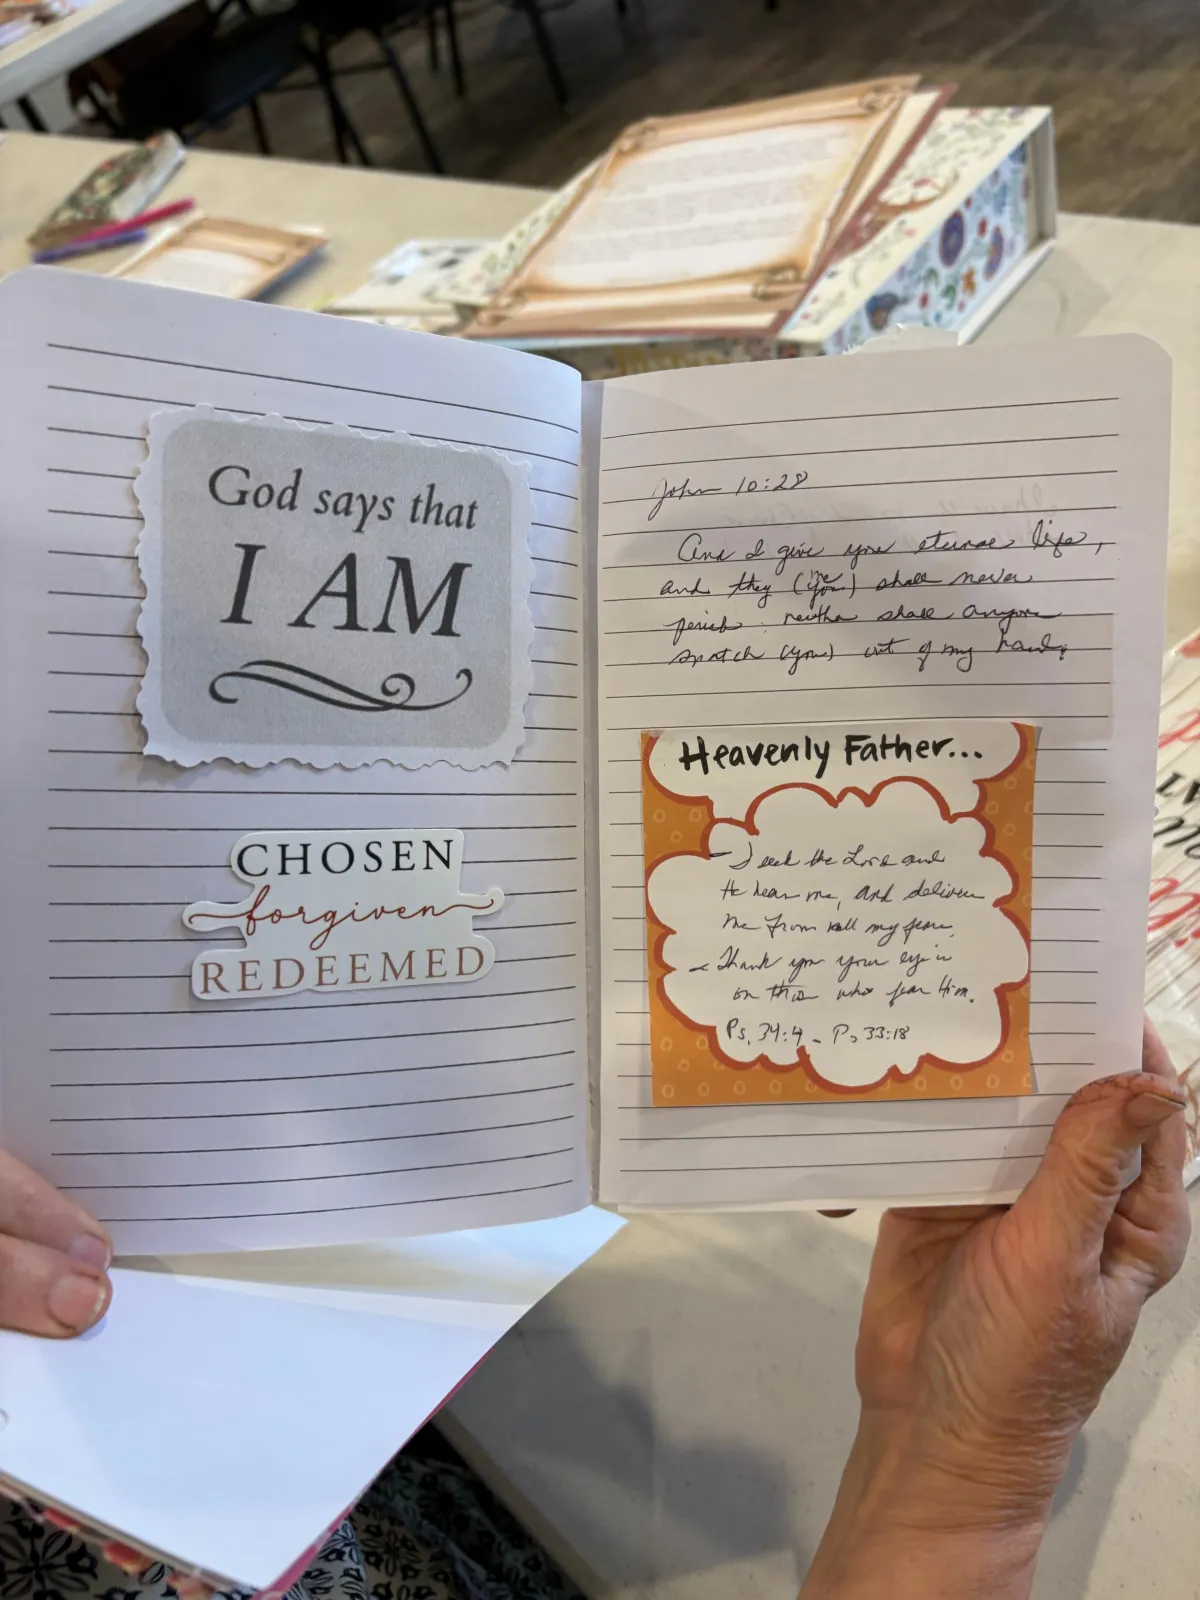 God says that
I AM
CHOSEN
forgiven
REDEEMED
John 10:28
And I give you eternal life,
and they (you) shall never
perish: neither shall anyone
snatch (you) out of my hand.
Heavenly Father...
- I seek the Lord and
He hears me, and delivers
me from all my fears.
- Thank you your eye is
on those who fear Him.
Ps. 34:4 - Ps 33:18